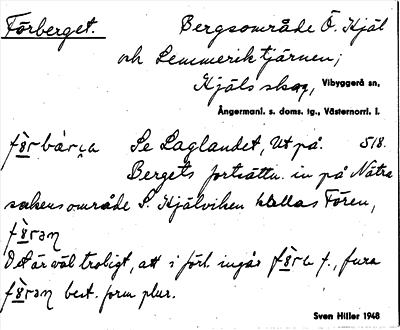 Förberget. Bergsområde Ö. Hjäl
och Lemmeriktjärnen;
Hjälsskog, Vibyggerå sn,
Ångermanl. s. doms. tg., Västernorrl. l.
Se Laglandet, Ut på. 518.
Bergets fortsättn. in på Nätra
sockens område S. Hjälviken kallas Fören,
Det är väl troligt, att i förl. ingår f., fura
best. form plur.
Sven Hiller 1948